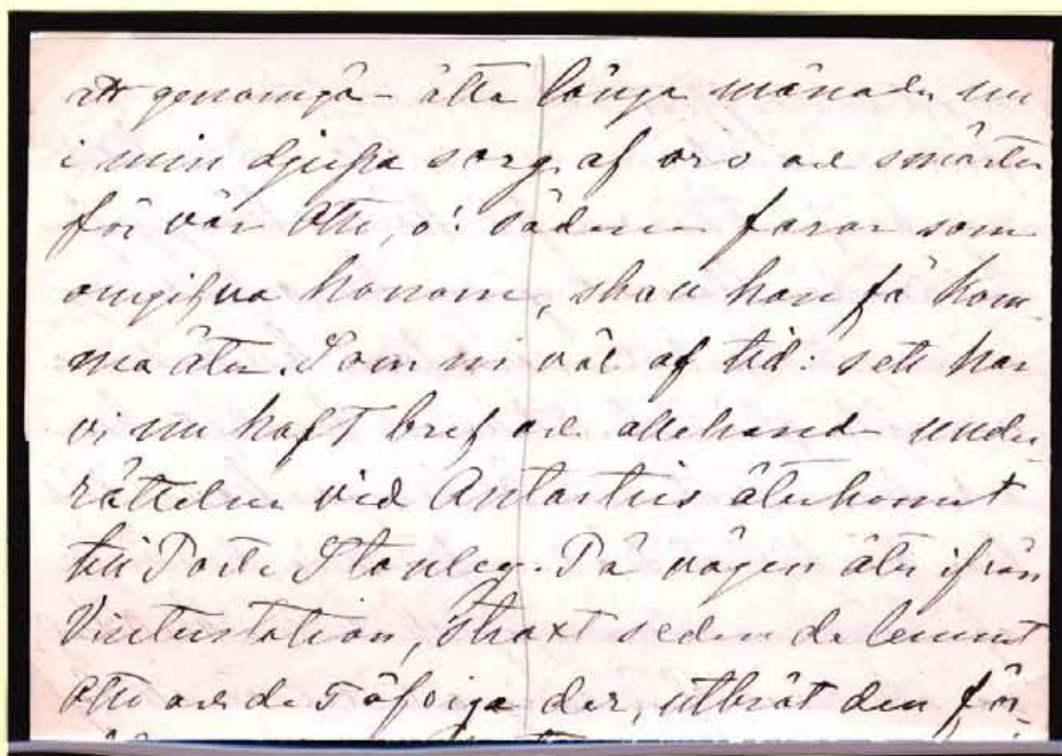 att genomgå – åtta långa månader nu
i min djupa sorg, af oro och smärta
för vår Otto, o: sådana faror som
omgifva honom, skall han få kom-
ma åter. Som ni väl af tid: sett har
vi nu haft bref och allehanda under
rättelser vid Antarctics återkomst
till Porte Stanley. På vägen åter ifrån
Vinterstation, straxt sedan de lemnat
Otto och de öfriga der, utbröt den för